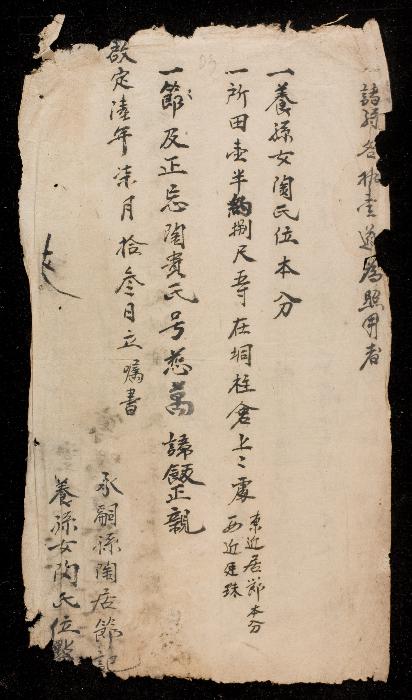 一諸孫各執壹道爲照用者
一養孫女陶氏位本分
一所田壹半高捌尺五寸在垌柱倉上〻處東近居節本分
西近廷珠
一節及正忌陶貴氏号慈萬諦飯正親
啟定陸年柒月拾叁日立嘱書
承嗣孫陶居節記
養孫女陶氏位點